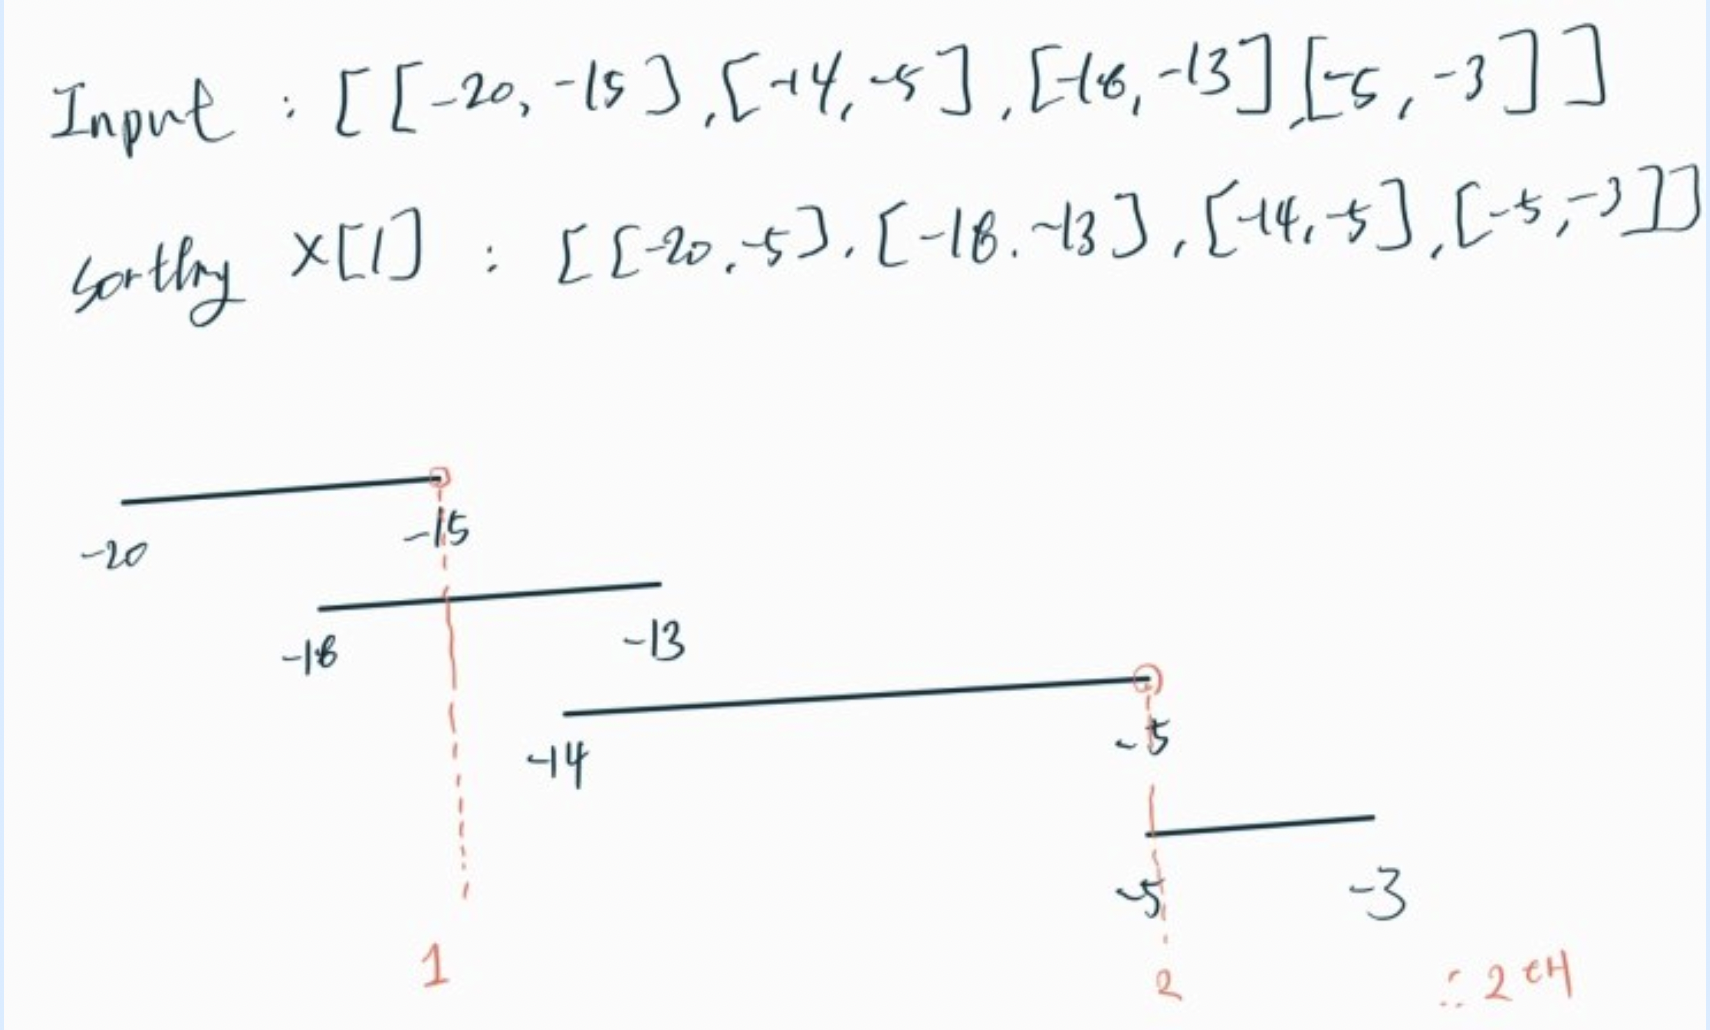 Input : [[-20, -15], [-14, -5], [-18, -13], [-5, -3]]
sorting x[1] : [[-20, -5], [-18. -13], [-14, -5], [-5, -3]]
-20
-15
-18
-13
-14
-5
-5
-3
1
2
∴ 2대